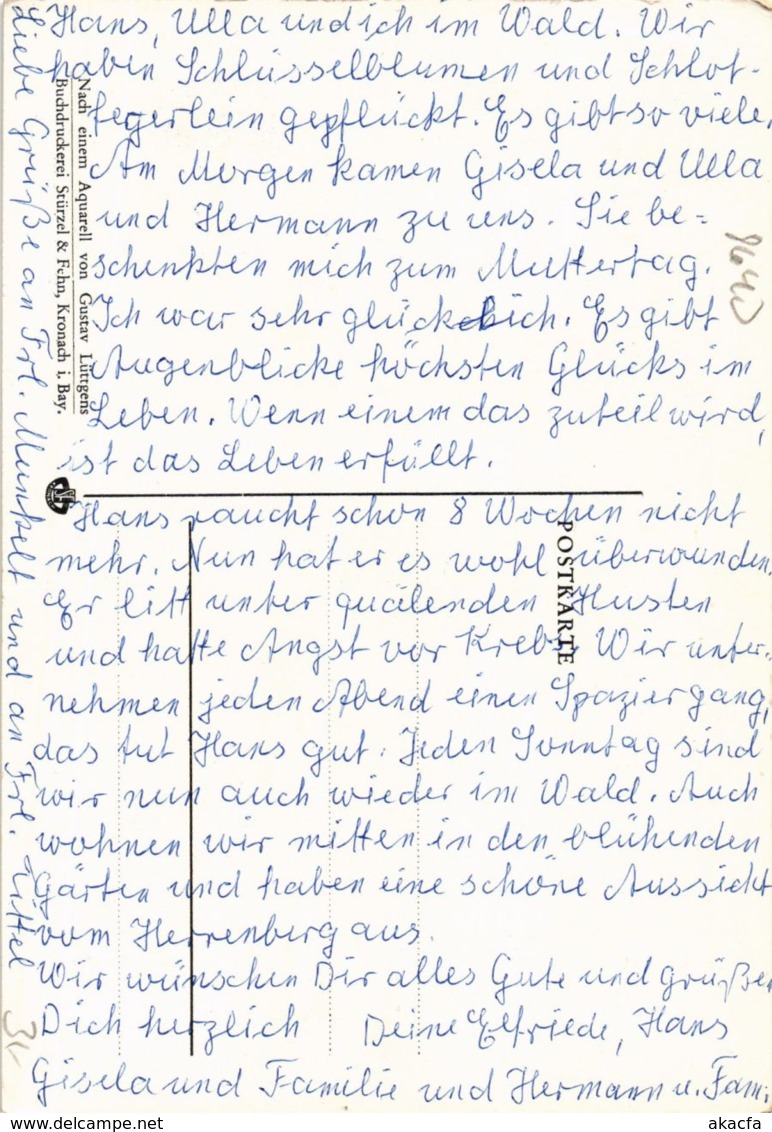 Hans, Ulla und ich im Wald. Wir
haben Schlüsselblumen und Schlot-
fegerlein gepflückt. Es gibt so viele.
Am Morgen kamen Gisela und Ulla
und Hermann zu uns. Sie be=
schenkten mich zum Muttertag.
Ich war sehr glücklich. Es gibt
Augenblicke höchsten Glücks im
Leben. Wenn einem das zuteil wird,
ist das Leben erfüllt.
Hans raucht schon 8 Wochen nicht
mehr. Nun hat er es wohl überwunden.
Er litt unter quälenden Husten
und hatte Angst vor Krebs. Wir unter-
nehmen jeden Abend einen Spaziergang,
das tut Hans gut. Jeden Sonntag sind
wir nun auch wieder im Wald. Auch
wohnen wir mitten in den blühenden
Gärten und haben eine schöne Aussicht
vom Herrenberg aus.
Wir wünschen Dir alles Gute und grüßen
Dich herzlich Deine Elfriede, Hans
Gisela und Familie und Hermann u. Fam.
Liebe Grüße an Frl. Munkelt und an Frl. Zittel
Nach einem Aquarell von Gustav Lüttgens
Buchdruckerei Stürzel & Fehn, Kronach i. Bay.
POSTKARTE
akacfa